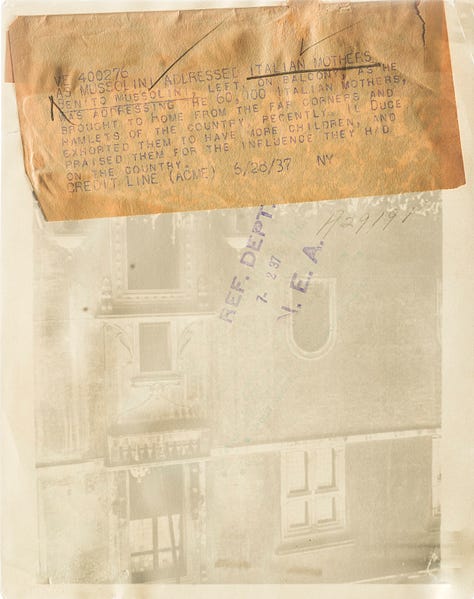 VE 400276
AS MUSSOLINI ADDRESSED ITALIAN MOTHERS
BENITO MUSSOLINI, LEFT, ON BALCONY, AS HE
WAS ADDRESSING THE 60,000 ITALIAN MOTHERS,
BROUGHT TO ROME FROM THE FAR CORNERS AND
HAMLETS OF THE COUNTRY, RECENTLY. IL DUCE,
EXHORTED THEM TO HAVE MORE CHILDREN, AND
PRAISED THEM FOR THE INFLUENCE THEY HAD
ON THE COUNTRY.
CREDIT LINE (ACME) 6/26/37 NY
REF. DEPT.
7- 2 37
N. E. A.